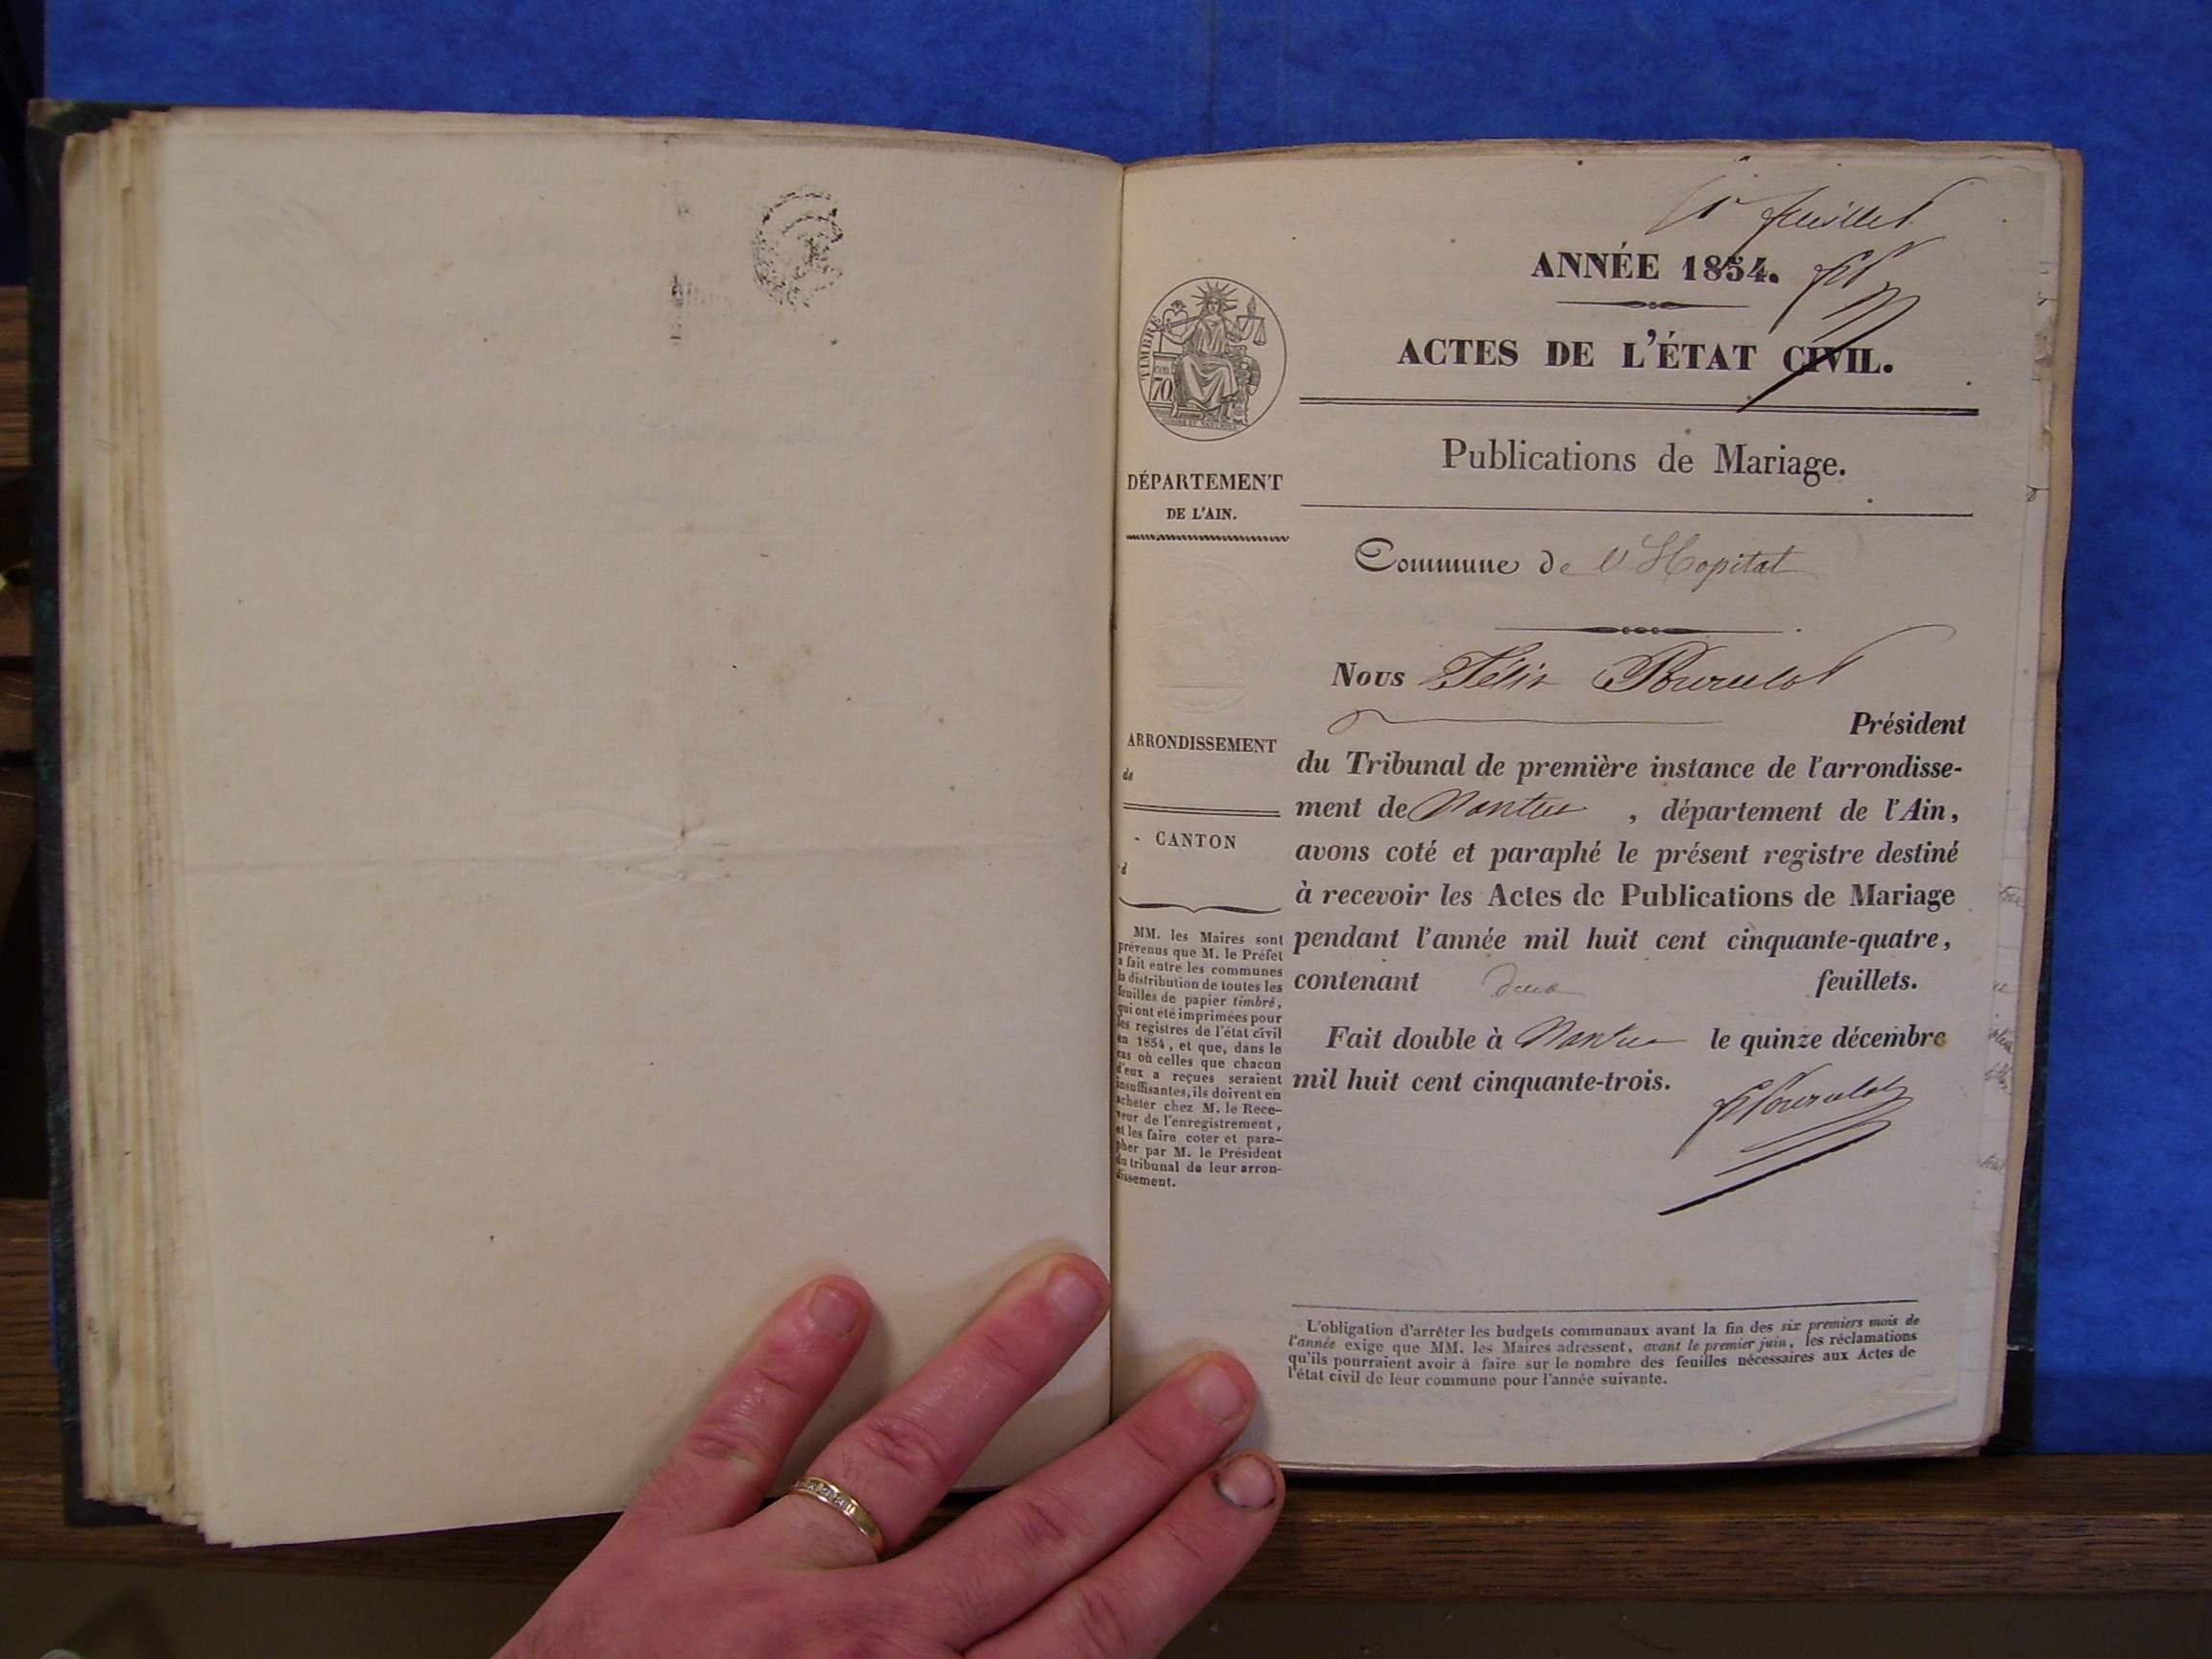 1er feuillet
ANNÉE 1854.
ACTES DE L'ÉTAT CIVIL.
TIMBRE
70
Publications de Mariage.
DÉPARTEMENT
DE L'AIN.
Commune de l'Hopital
Nous Félix Pourcelot
Président
du Tribunal de première instance de l'arrondisse-
ment de Nantua , département de l'Ain,
avons coté et paraphé le présent registre destiné
à recevoir les Actes de Publications de Mariage
pendant l'année mil huit cent cinquante-quatre,
contenant deux feuillets.
Fait double à Nantua le quinze décembre
mil huit cent cinquante-trois.
ARRONDISSEMENT
de
CANTON
d
MM. les Maires sont
prévenus que M. le Préfet
a fait entre les communes
la distribution de toutes les
feuilles de papier timbré,
qui ont été imprimées pour
les registres de l'état civil
en 1854, et que, dans le
cas où celles que chacun
d'eux a reçues seraient
insuffisantes, ils doivent en
acheter chez M. le Rece-
veur de l'enregistrement,
et les faire coter et para-
pher par M. le Président
du tribunal de leur arron-
dissement.
L'obligation d'arrêter les budgets communaux avant la fin des six premiers mois de
l'année exige que MM. les Maires adressent, avant le premier juin, les réclamations
qu'ils pourraient avoir à faire sur le nombre des feuilles nécessaires aux Actes de
l'état civil de leur commune pour l'année suivante.